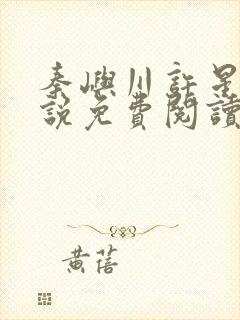 秦嶼川許是
說免費閱讀
黃蓓